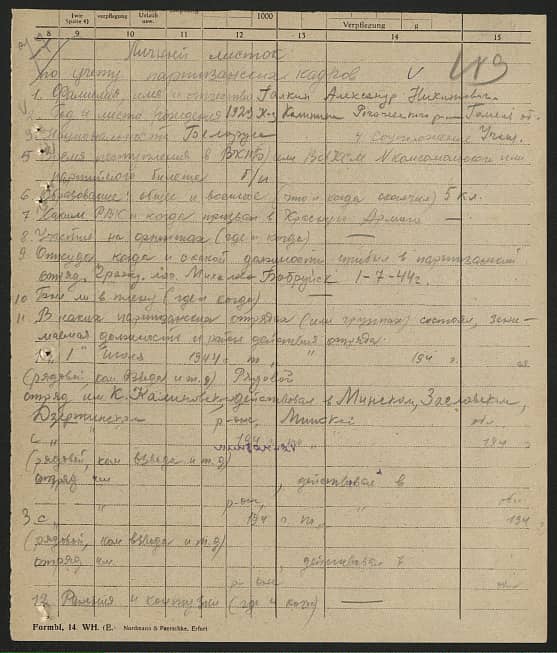 (wie Spalte 4) verpflegung Urlaub usw. 1000 Verpflegung g
8 9 10 11 12 13 14 15
Личный листок
по учету партизанских кадров V
1. Фамилия, имя и отчество Галкин Александр Никитович
2. Год и место рождения 1929 Х-р Калинин р-н Гомель об.
3. Национальность Белорус 4 Соцположение Учащ.
5 Время вступления в ВКП(б) или ВЛКСМ N комсомольского или
партийного билета б/п
6. Образование: общее и военное (что и когда окончил) 5 кл.
7 Каким РВК и когда призван в Красную Армию —
8. Участие на фронтах (где и когда) —
9 Откуда, когда и с какой должности прибыл в партизанский
отряд. Бобруйск 1-7-44г.
10 Был ли в плену (где и когда) —
11 В каких партизанских отрядах (или группах) состоял, зани-
маемая должность и район действия отряда.
1 " Июня 1944 г. по " 194 г.
(рядовой, ком взвода и т.д) Рядовой
отряд им К. Калиновского действовал в Минском, Заславском,
Дзержинском р-он, Минской обл.
с " 194
(рядовой, ком взвода и т.д)
отряд им , действовал в
р-он, обл.
3. с " 194 г. по " 194
(рядовой, ком взвода и т.д)
отряд им. , действовал в
р-он
12 Ранения и контузии (где и когда) —
Formbl. 14. WH. (E. Nordmann & Paerschke, Erfurt